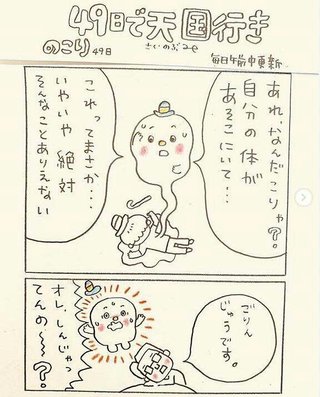 49日で天国行き
のこり49日
さくいのぶこせ
毎日午前中更新
あれ、なんだこりゃ?。
自分の体が
あそこにいて・・・
これってまさか・・・
いやいや絶対
そんなことありえない
ごりん
じゅうです。
オレ、しんじゃっ
てんの〜?。